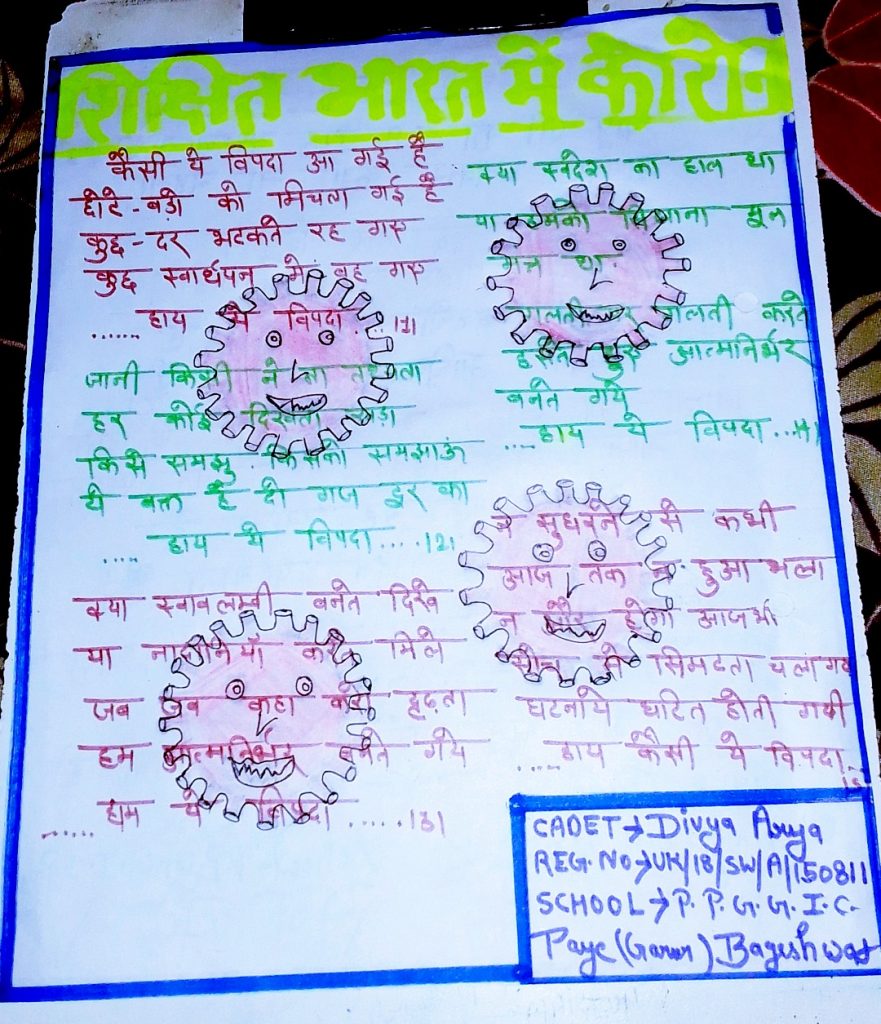 शिक्षित भारत में कोरोना
कैसी ये विपदा आ गई है
छोटे-बड़ो को मिचला गई है
कुछ-दर भटकते रह गए
कुछ स्वार्थपन मे बह गए
......हाय ये विपदा....।1।
जानी किसी ने ना
हर कोई दिखता
किसे समझु. किसको समझाऊं
ये वक्त है दो गज दूर का
.....हाय ये विपदा....।2।
क्या स्वावलम्वी बनते दिखे
या नादानियाँ करते मिले
जब जब कहा करो दृढ़ता
हम आत्मनिर्भर बनते गये
......हाय ये विपदा......।3।
क्या स्वदेश का हाल था
या हमको भूल
था.
गलती पर गलती करते
हुए आत्मनिर्भर
बनते गये
....हाय ये विपदा...।4।
ने सुधरने से कभी
आज तक न हुआ भला
न और होगा आजभी
सिमटता चला गया
घटनाये घटित होती गयी
.....हाय कैसी ये विपदा
CADET→Divya Arya
REG. No→UK/18/SW/A/150811
SCHOOL→P. P. G. G. I. C.
Paye (Garur) Bageshwar